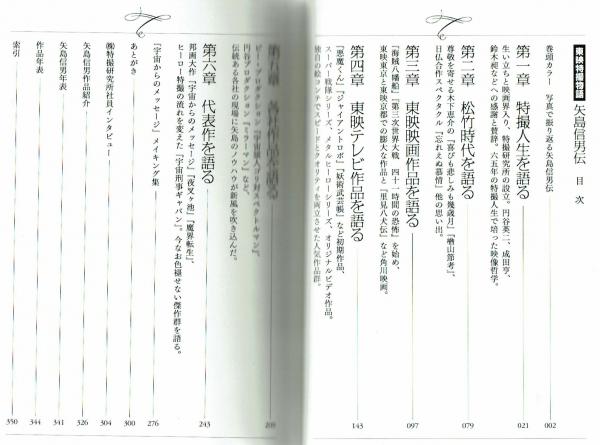 東映特撮物語 矢島信男伝 目次
巻頭カラー 写真で振り返る矢島信男伝 002
第一章 特撮人生を語る 021
生い立ちと映画界入り、特撮研究所の設立。円谷英二、成田亨、
鈴木昶などへの感謝と賛辞。六五年の特撮人生で培った映像哲学。
第二章 松竹時代を語る 079
尊敬を寄せる木下恵介の『喜びも悲しみも幾歳月』『楢山節考』、
日仏合作スペクタクル『忘れえぬ慕情』他の思い出。
第三章 東映映画作品を語る 097
『海賊八幡船』『第三次世界大戦 四十一時間の恐怖』を始め、
東映東京と東映京都での膨大な作品と『里見八犬伝』など角川映画。
第四章 東映テレビ作品を語る 143
『悪魔くん』『ジャイアントロボ』『妖術武芸帳』など初期作品、
スーパー戦隊シリーズ、メタルヒーローシリーズ、オリジナルビデオ作品。
独自の絵コンテでスピードとクオリティを両立させた人気作品群。
第五章 各社作品を語る 209
ピー・プロダクション『宇宙猿人ゴリ対スペクトルマン』、
円谷プロダクション『ミラーマン』など、
伝統ある各社の現場に矢島のノウハウが新風を吹き込んだ。
第六章 代表作を語る 243
邦画大作『宇宙からのメッセージ』『夜叉ヶ池』『魔界転生』、
ヒーロー特撮の流れを変えた『宇宙刑事ギャバン』。今なお色褪せない傑作群を語る。
『宇宙からのメッセージ』メイキング集 276
あとがき 300
㈱特撮研究所社員インタビュー 304
矢島信男作品紹介 326
矢島信男年表 341
作品年表 344
索引 350